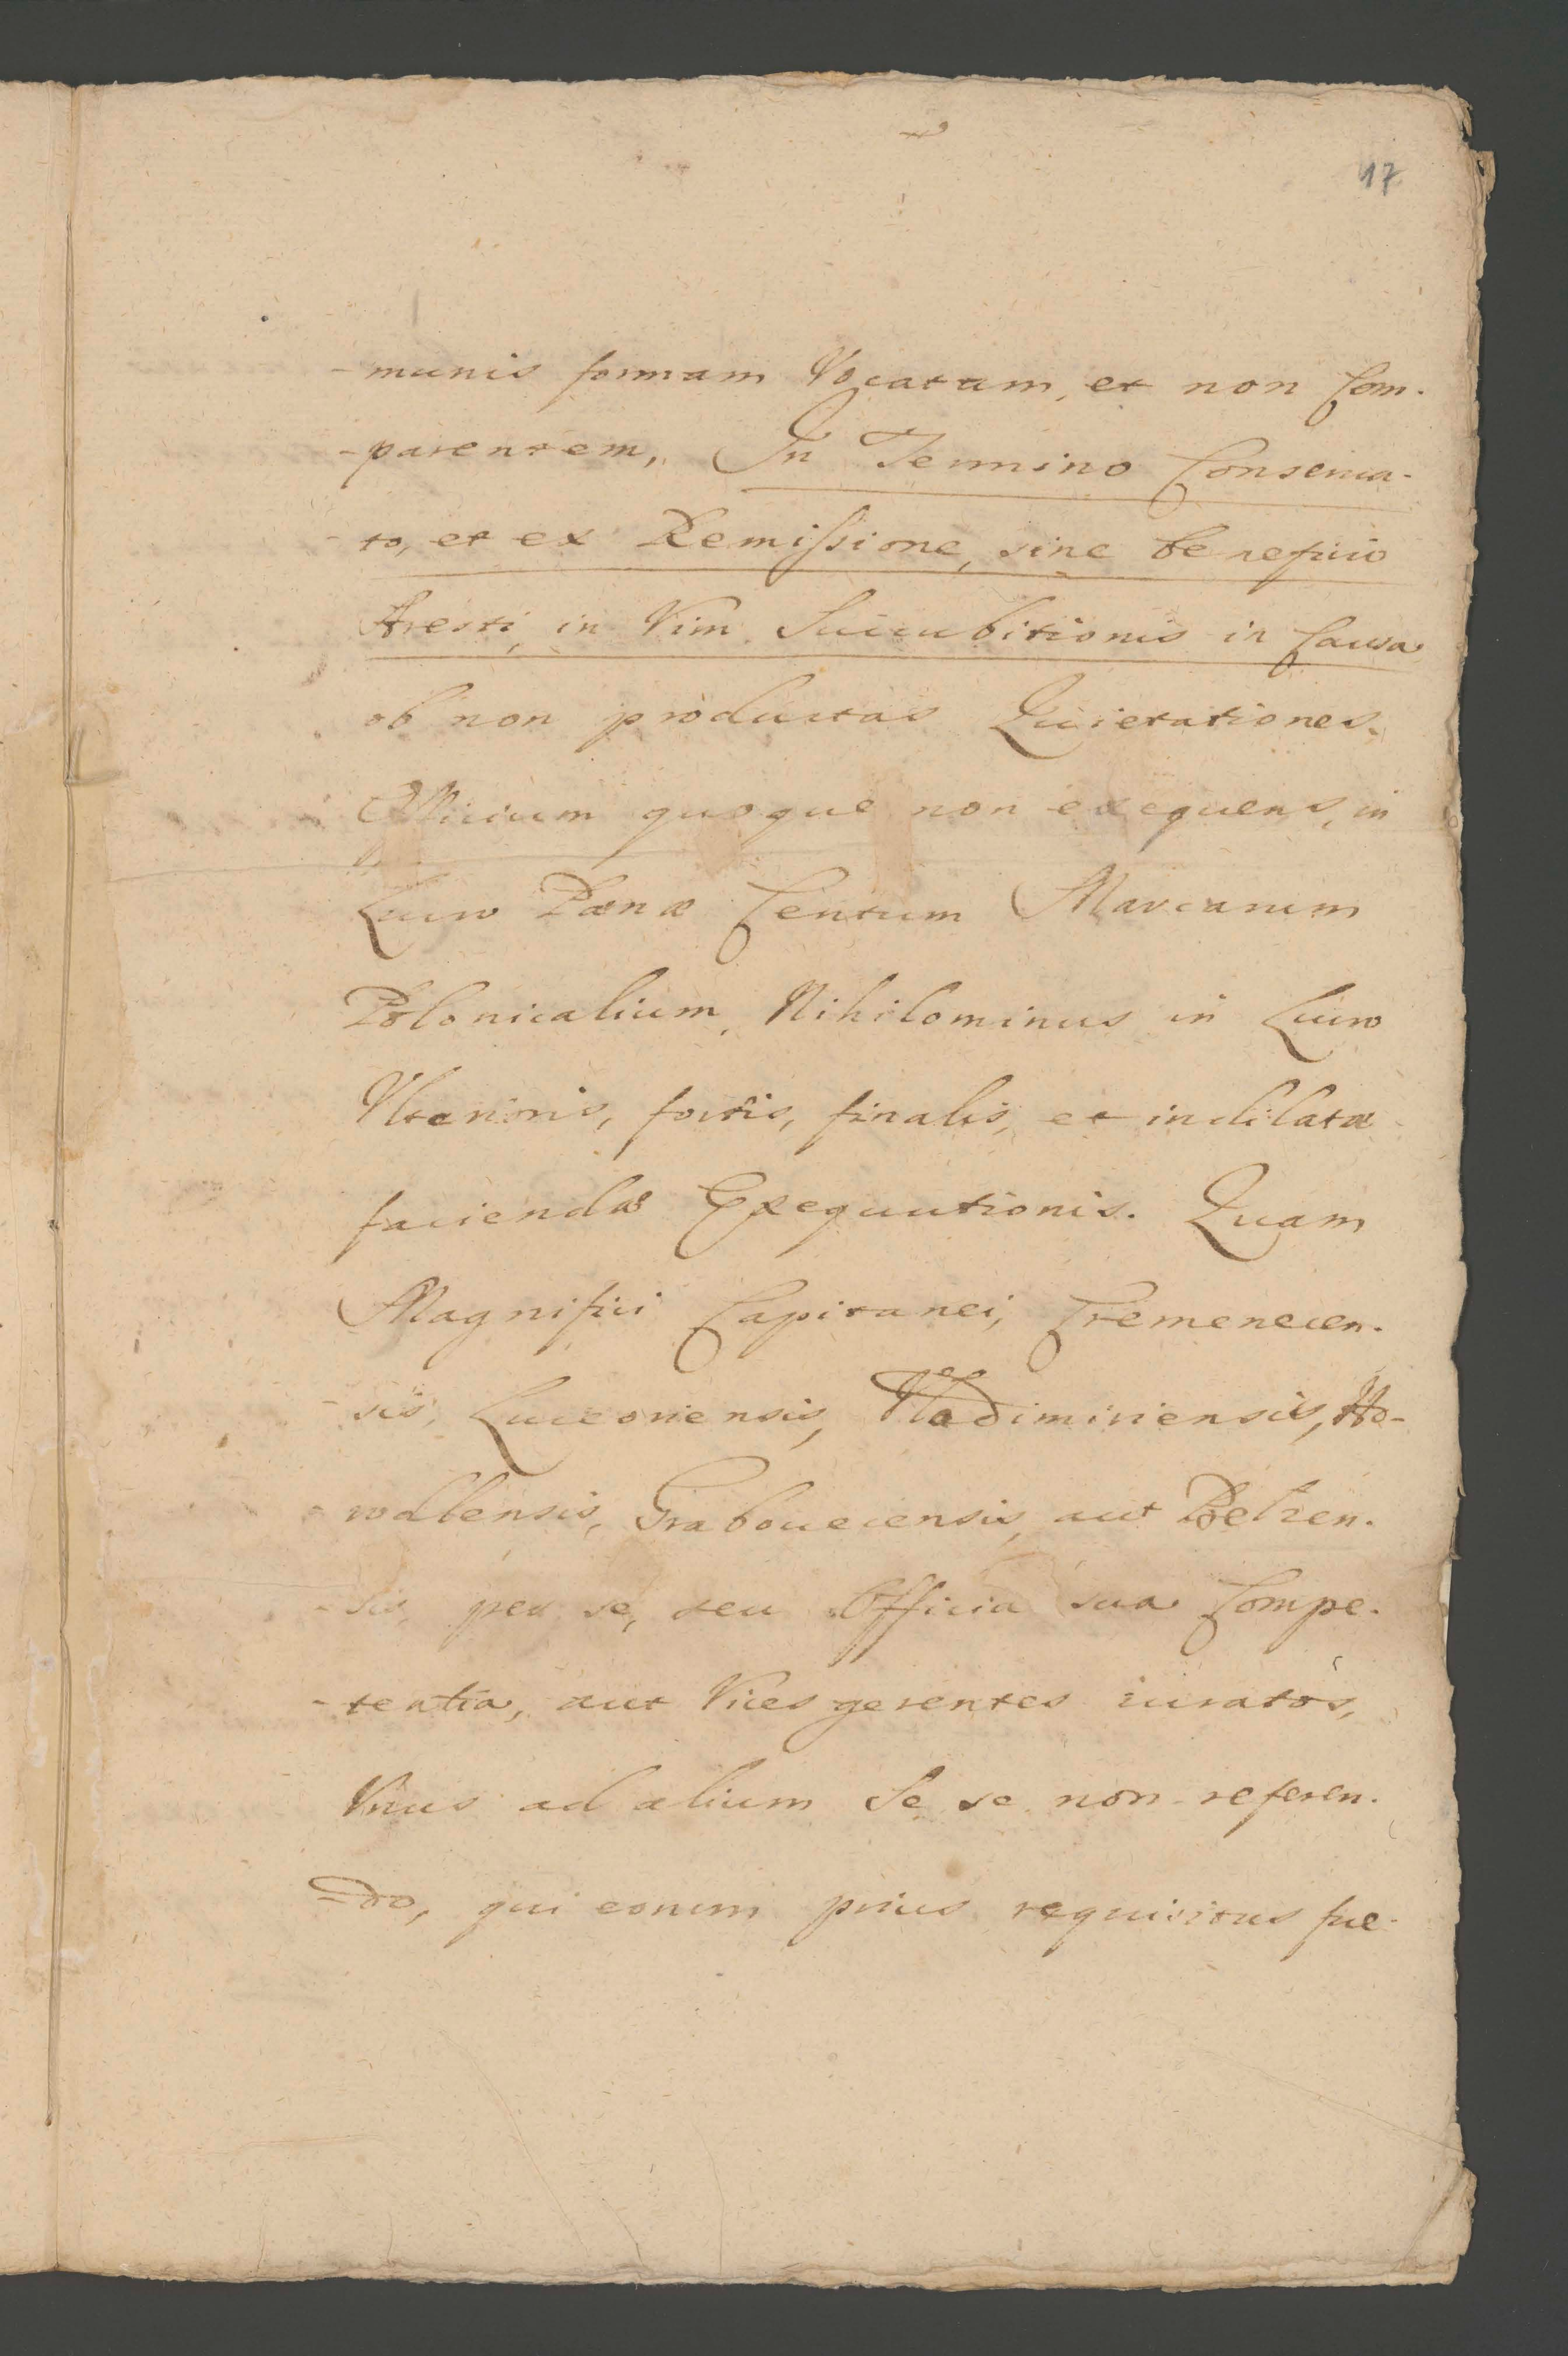 17
-munis formam Vocatum, et non Com-
-parentem, In Termino Conserva-
-to, et ex Remissione, sine beneficio
Aresti, in Vim Succubitionis in Causa
ob non productas Quietationes.
Officium quoque non exequens, in
Lucro Pœnæ Centum Marcarum
Polonicalium, Nihilominus in Lucro
Vlterioris, fortis, finalis, et indilatæ
faciendæ Exequutionis. Quam
Magnifici Capitanei, Cremenecen-
-sis, Luceoriensis, Vladimiriensis, Ho-
-rodlensis, Grabouecensis, aut Belzen-
-sis, per se, seu Officia sua Compe-
-tentia, aut Vices gerentes iuratos,
Vnus ad alium Se se non referen-
-do, qui eorum prius requisitus fue-